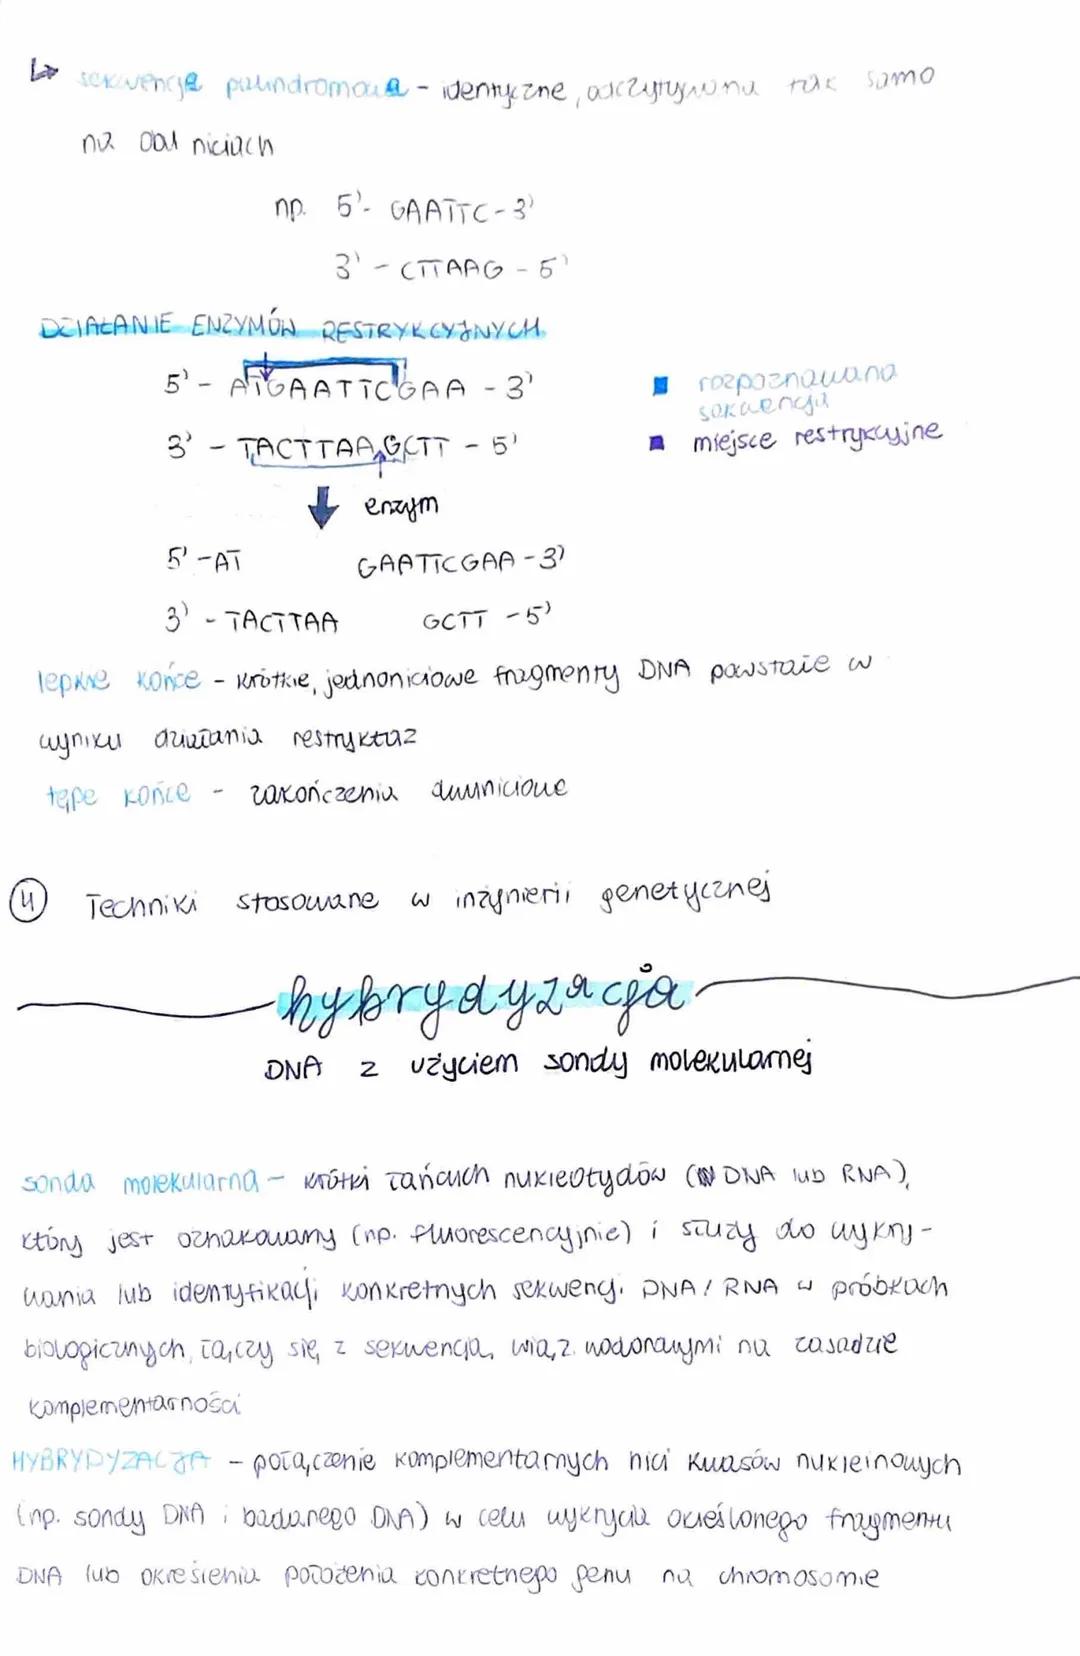 ↳ sekwencja palindromowa - identyczne, odczytywana tak samo
na obu niciach
np. 5'- GAATTC - 3'
3' - CTTAAG - 5'
DZIAŁANIE ENZYMÓW RESTRYKCYJNYCH
5' - ATGAATTCGAA - 3'
rozpoznawana
sekwencja
3' - TACTTAAGCTT - 5'
miejsce restrykcyjne
enzym
5' - AT GAATTCGAA - 3'
3' - TACTTAA GCTT - 5'
lepkie końce - krótkie, jednoniciowe fragmenty DNA powstałe w
wyniku działania restryktaz
tępe końce - zakończenia dwuniciowe
4 Techniki stosowane w inżynierii genetycznej
hybrydyzacja
DNA z użyciem sondy molekularnej
sonda molekularna - krótki łańcuch nukleotydów (DNA lub RNA),
który jest oznakowany (np. fluorescencyjnie) i służy do wykry-
wania lub identyfikacji konkretnych sekwencji DNA/RNA w próbkach
biologicznych, łączy się z sekwencją wiąz. wodorowymi na zasadzie
komplementarności
HYBRYDYZACJA - połączenie komplementarnych nici kwasów nukleinowych
(np. sondy DNA i badanego DNA) w celu wykrycia określonego fragmentu
DNA lub określenia położenia konkretnego genu na chromosomie